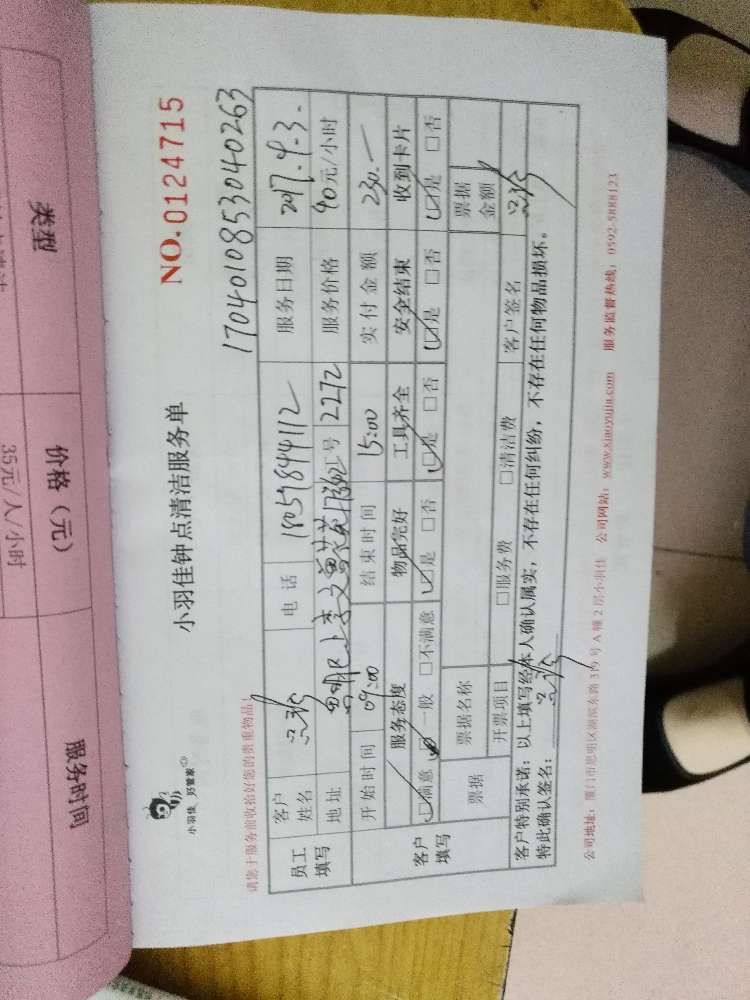 小羽佳 好管家
小羽佳钟点清洁服务单
NO.0124715
1704010853040263
请您于服务前收拾好您的贵重物品!
员工填写
客户姓名
电话 18059844112
服务日期 2017.4.3.
地址
工号 2272
服务价格 40元/小时
开始时间 09:00
结束时间 15:00
实付金额 230.一
客户填写
服务态度 物品完好 工具齐全 安全结束 收到卡片
□满意 □一般 □不满意 □是 □否 □是 □否 □是 □否 □是 □否
票据
票据名称
票据金额
开票项目 □服务费 □清洁费 客户签名
客户特别承诺:以上填写经本人确认属实,不存在任何纠纷,不存在任何物品损坏。
特此确认签名:
公司地址:厦门市思明区湖滨东路319号A幢2层小羽佳 公司网站:www.xiaoyujia.com 服务监督热线:0592-5888123
类型
价格(元)
服务时间
35元/人/小时